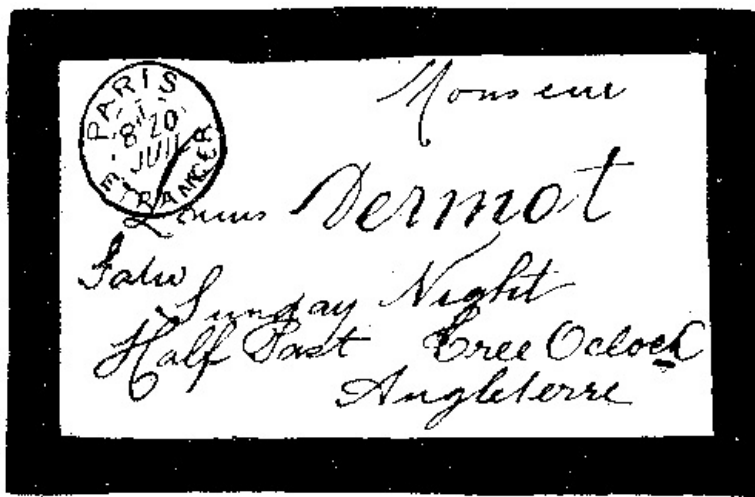 PARIS
8 20
JUIL
ETRANGER
Monsieur
Louis Dermot
Sunday Night
Half Past Tree Oclock
Angleterre